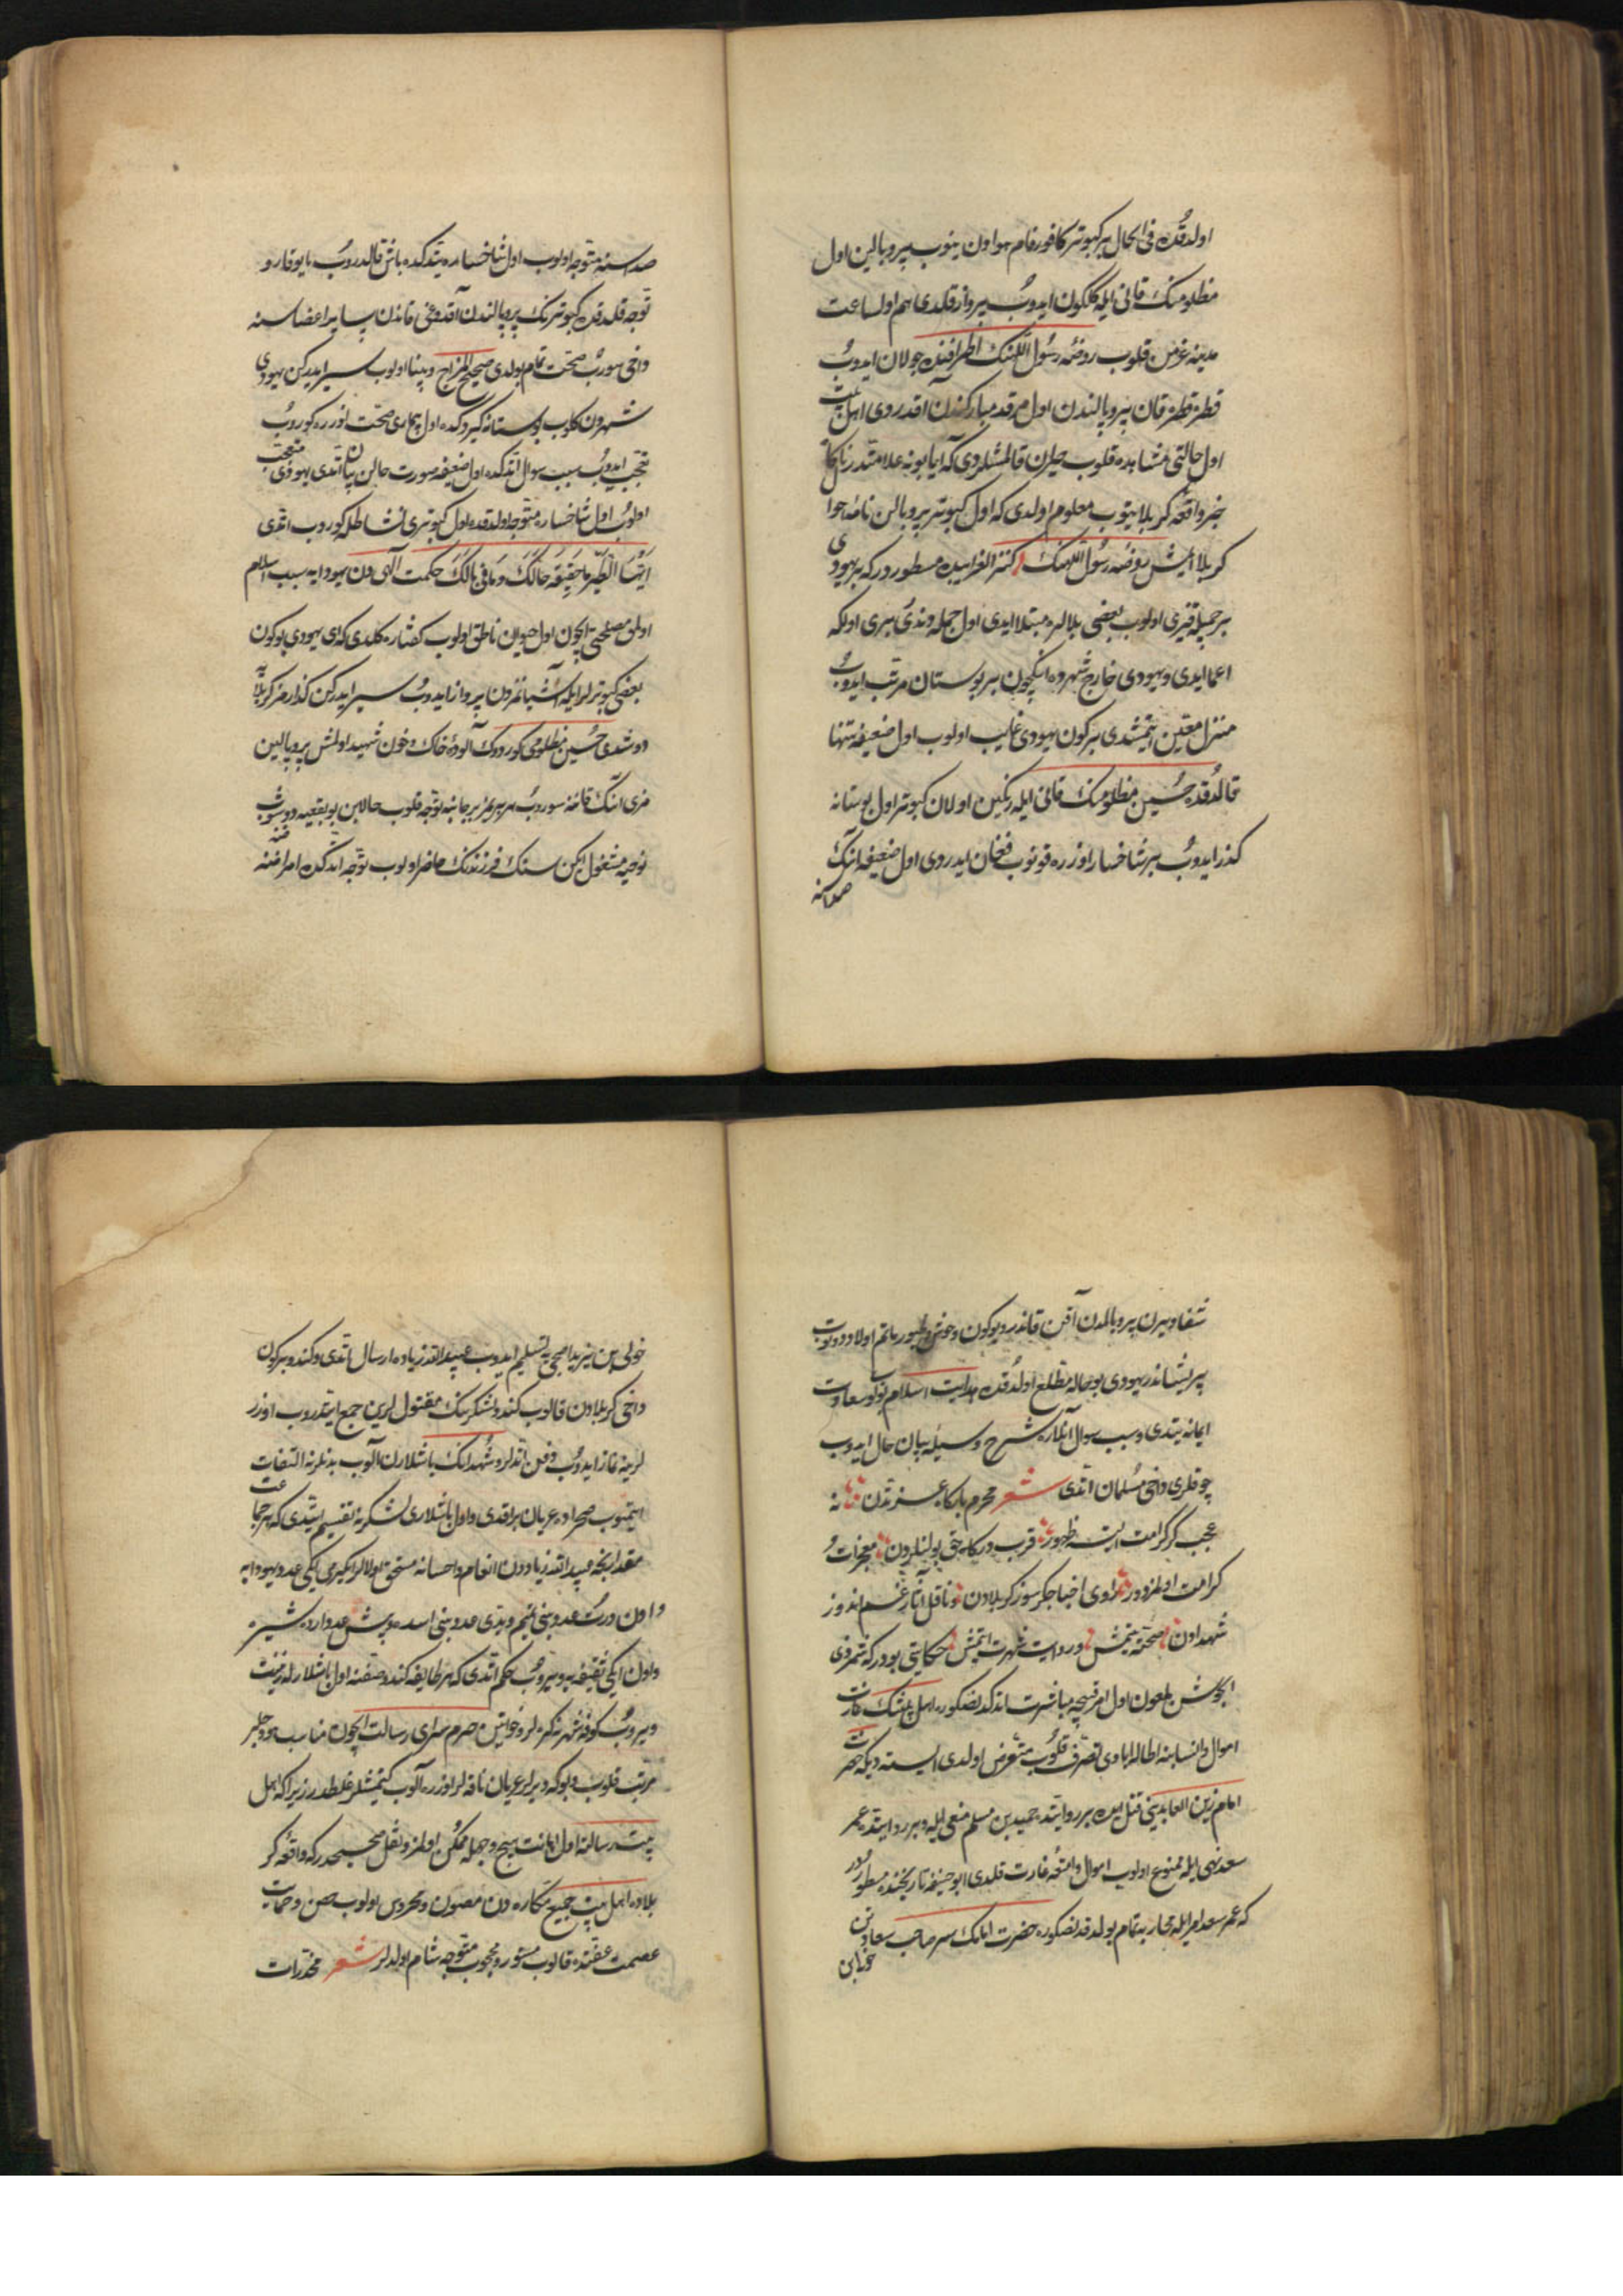 اولدقده فی الحال بر کبوتر کافورفام هوادن ینوب پر و بالین اول
مظلومنک قانی ایله کلکون ایدوب پرواز قلدی هم اول ساعت
مدینه عزمن قلوب روضه رسول اللهنک اطرافنده جولان ایدوب
قطره قطره قان پر و بالندن اول مرقد مبارکندن آقدردی اهل بیت
اول حالتی مشاهده قلوب حیران قالمشلردی که آیا بو نه علامتدر ناکاه
خبر واقعه کربلا یتوب معلوم اولدی که اول کبوتر پر و بالن نامه
کربلا ایتمش روضه رسول اللهنک کنز الغرایبده مسطوردر که بر یهودی
بر جمیله قیزی اولوب بعضی بلالره مبتلا ایدی اول جمله دندی بری اولکه
اعما ایدی و یهودی خارج شهرده انکچون بر بوستان مرتب ایدوب
منزل معین ایتمشدی بر کون یهودی غایب اولوب اول ضعیفه تنها
قالدقده حسین مظلومنک قانی ایله رنکین اولان کبوتر اول بوستانه
کذر ایدوب بر شاخسار اوزره قونوب فغان ایدردی اول ضعیفه انک
صداسنه
صداسنه متوجه اولوب اول شاخساره یتدکده باش قالدروب بایوقارو
توجه قلدقده کبوترنک پر و بالندن آقدوغی قاندن سایر اعضاسنه
داخی سوروب صحت تمام بولدی صحیح المزاج و بینا اولوب سیر ایدرکن یهودی
شهردن کلوب بوستانه کیردکده اول بیماری صحت اوزره کوروب
تعجب ایدوب سبب سوال اتدکده اول ضعیفه صورت حالن بیان اتدی یهودی متعجب
اولوب اول شاخساره متوجه اولدقده اول کبوتری نشاطله کوروب اتدی
ایها الطیر ما حقیقة حالک و ما فی بالک حکمت الهی دن یهودایه سبب اسلام
اولمق مصلحتی ایچون اول حیوان ناطق اولوب کفتاره کلدی که ای یهودی بوکون
بعضی کبوترلر ایله آشیانمزدن پرواز ایدوب سیر ایدرکن کذارمز کربلایه
دوشدی حسین مظلومی کوردک آلوده خاک و خون شهید اولمش پر و بالین
مزی انک قاننه سوروب هر بریمز بر جانبه توجه قلوب حالا بن بو بقعیه دوشوب
نوحیه مشغول ایکن سنک فرزندنک حاضر اولوب توجه اتدکده امراضنه
شفا ویرن پر و بالمدن آقن قاندر و بوکون وحوش و طیور ماتم اولاد رسولدن
پریشاندر یهودی بو حاله مطلع اولدقده هدایت اسلام بولوب سعادت
ایمانه یتدی و سبب سوال ایدنلره شرح وسیله بیان حال ایدوب
چوقلری داخی مسلمان اتدی شعر محرم بارکاه عزتدن نه
عجب کر کرامت ایتسه ظهور قرب درکاه حق بولنلردن معجزات و
کرامت اولمز دور راوی اخبار جکرسوز کربلادن و ناقل آثار غم اندوز
شهدادن صحته یتمش و روایت شهرت ایتمش حکایتی بودر که شمر ذی
الجوشن ملعون اول امر قبیحه مباشرت اتدکدنصکره اهل بیتنک غارت
اموال و انسابنه اطاله ایادی تصرف قلوب متعرض اولدی ایسته دیکه حضرت
امام زین العابدینی قتل ایده بر روایتده حمید بن مسلم منعی ایله و بر روایتده عمر
سعد نهی ایله ممنوع اولوب اموال و امتعه غارت قلدی ابو حنیفه تاریخنده مسطوردر
که عمر سعد امر ایله محاربه تمام بولدقدنصکره حضرت امامک سر صاحب سعادتن
خولی بن
خولی بن یزید اصبحی یه تسلیم ایدوب عبید الله زیاده ارسال اتدی و کندو بر کون
داخی کربلادن قالوب کندو لشکرینک مقتوللرین جمع ایتدروب اوزر
لرینه نماز ایدوب دفن اتدلر و شهدانک باشلارن آلوب بدنلرنه التفات
ایتمیوب صحراده عریان براقدی و اول باشلاری لشکرنه تقسیم ایتدی که هر جماعت
مقدارنجه عبید الله زیاددن انعام و احسانه مستحق اولالر یکرمی ایکی عدد یهودایه
و اون درت عدد بنی تمیم و یدی عدد بنی اسده و بش عدد ازده
و اون ایکی ثقیفه یه ویروب حکم اتدی که هر طایفه کندو صفنه اول باشلارله زینت
ویروب کوفه شهرنه کیره لر و خواتین حرم سرای رسالت ایچون مناسب هودجلر
مرتب قلوب و بو که دیرلر عریان ناقه لر اوزره آلوب کیتمشلر غلطدر زیرا که اهل
بیت رسالته اول اهانت هیچ وجهله ممکن اولمز و نقل صحیحدر که واقعه کر
بلاده اهل بیت جمیع مکاره دن مصون و محروس اولوب حصن و حمایت
عصمت عفتده قالوب مستور و محجوب متوجه شام اولدلر شعر مخدرات